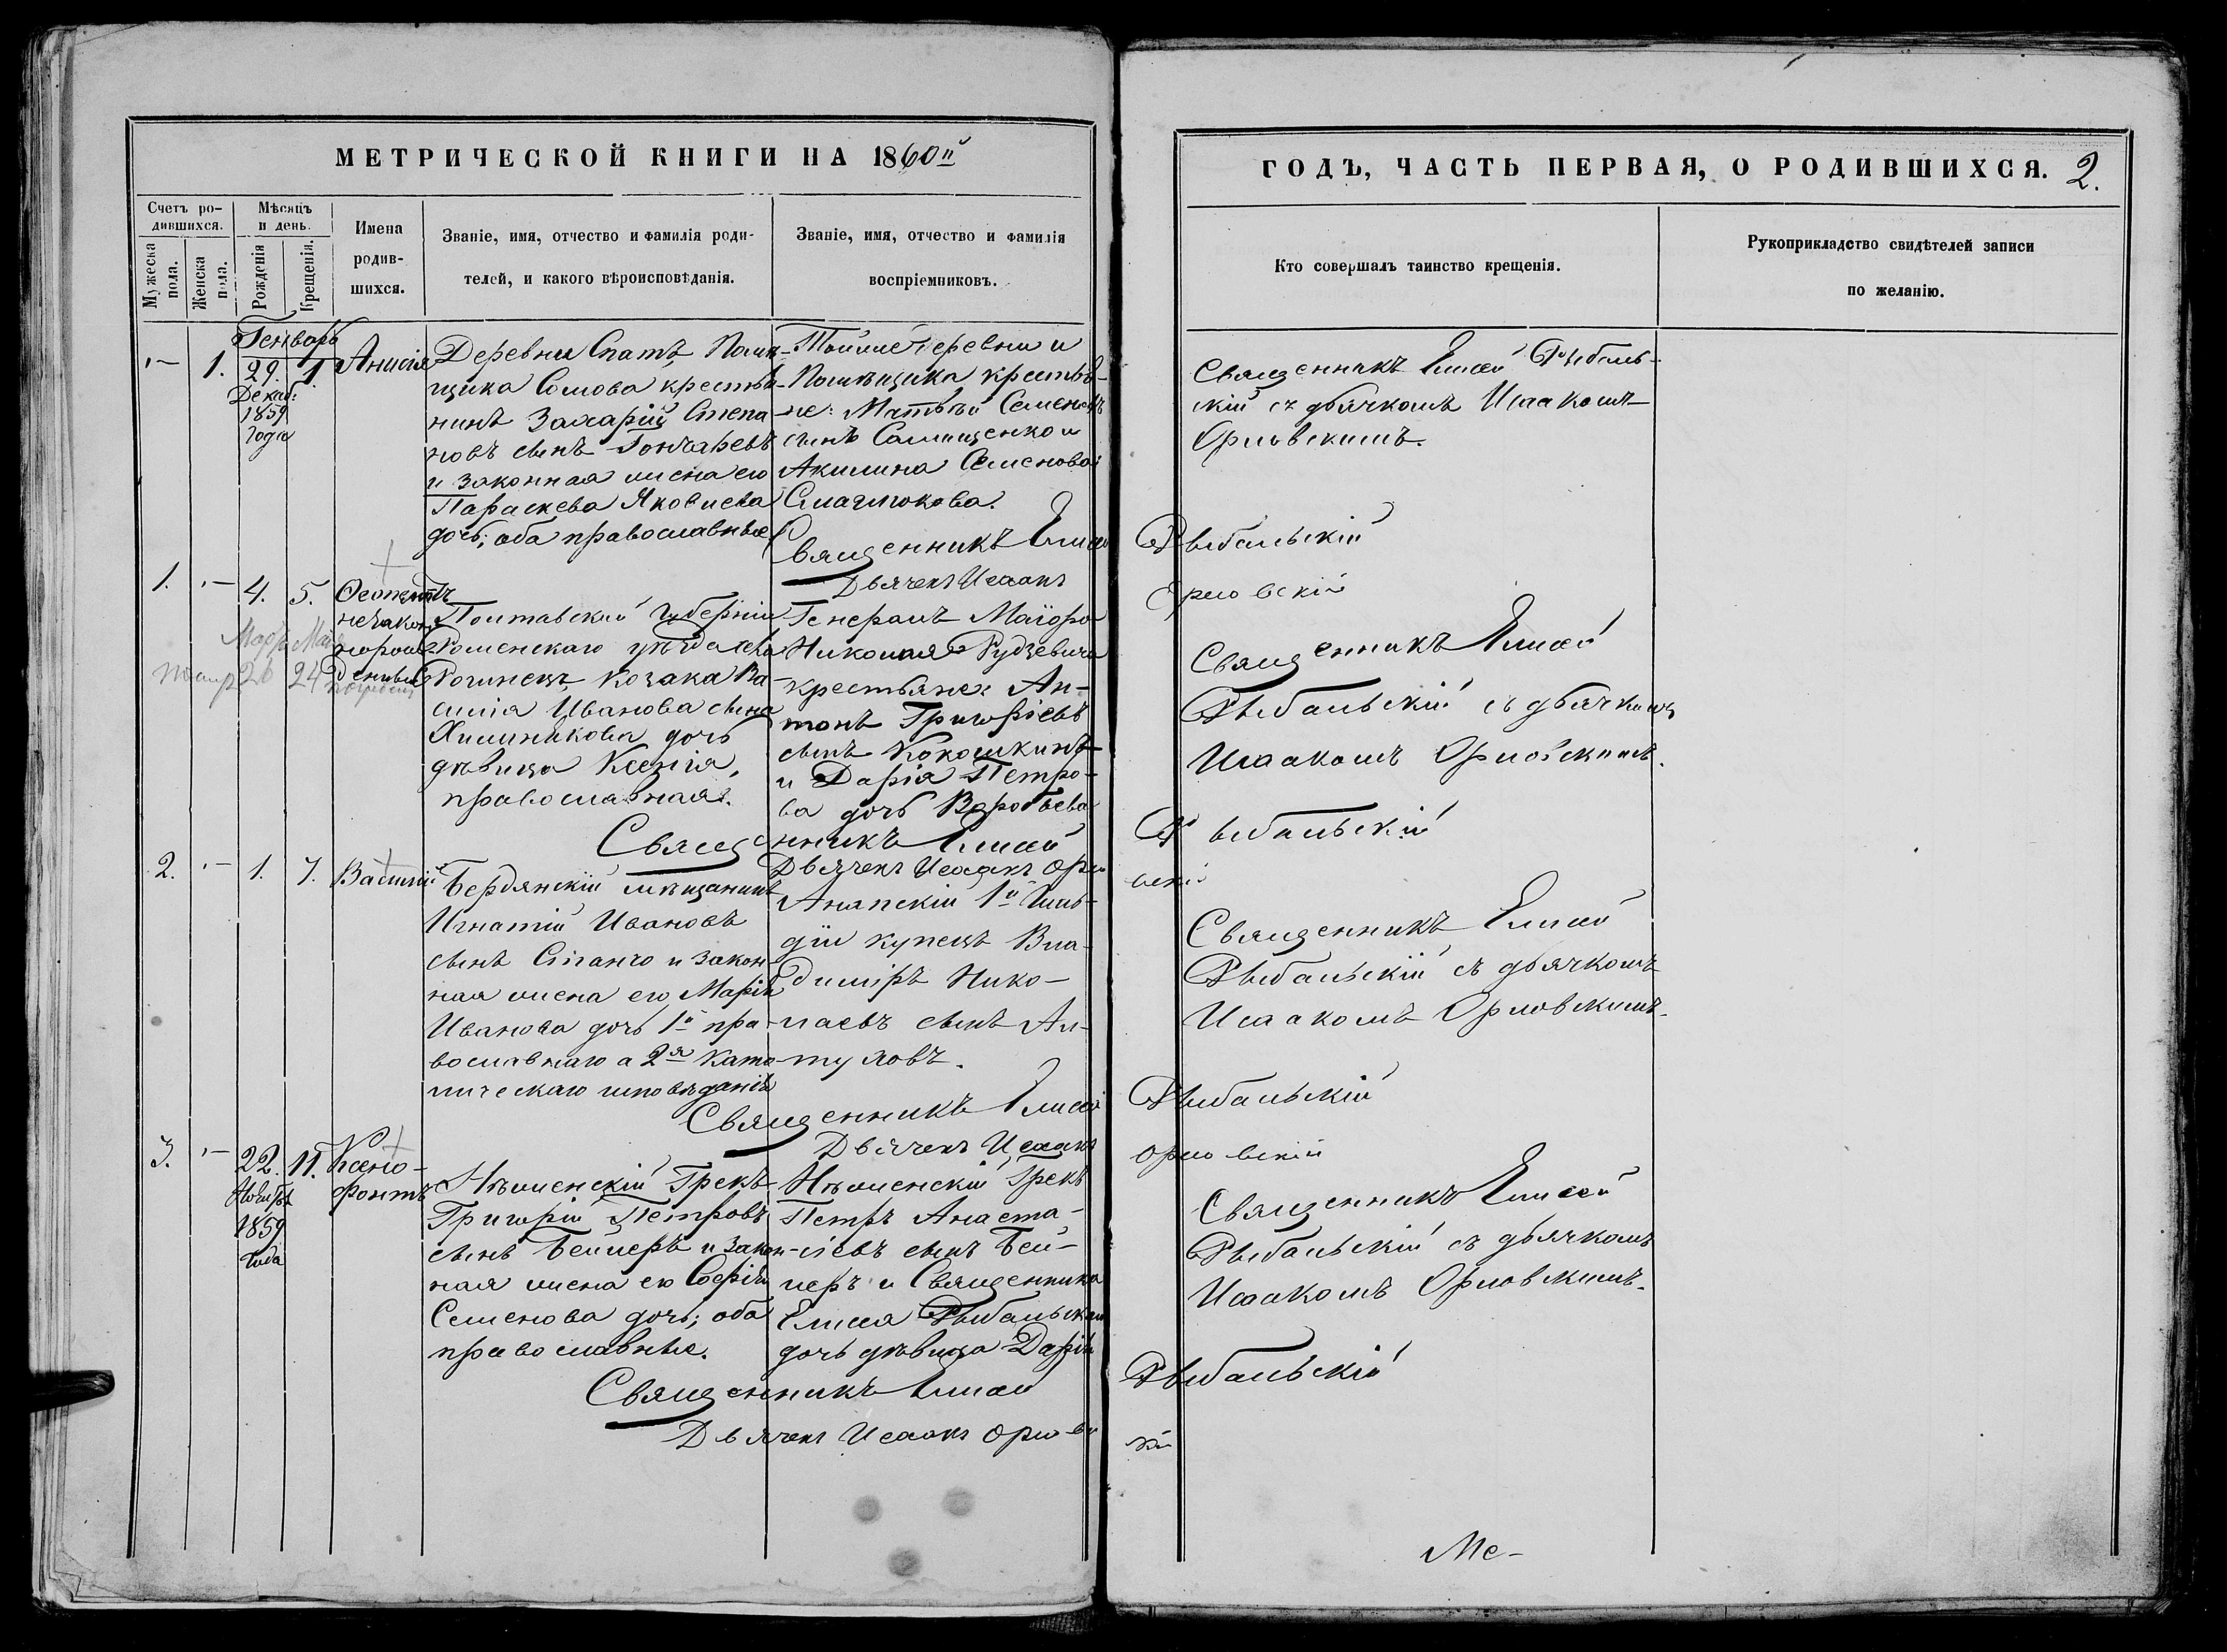 МЕТРИЧЕСКОЙ КНИГИ НА 1860й
Счетъ ро-
дившихся.
Мужеска
пола.
Женска
пола.
Мѣсяцъ
и день.
Рожденія
Крещенія.
Имена
родив-
шихся.
Званіе, имя, отчество и фамилія роди-
телей, и какого вѣроисповѣданія.
Званіе, имя, отчество и фамилія
воспріемниковъ.
Генварь
1.
29.
Декаб:
1859
года
1
Анисія
Деревни Спатъ, Помѣ-
щика Сомова крестья-
нинъ Захарій Степа
новъ сынъ Гончаревъ
и законная жена его
Параскева Яковлева
дочь; оба православные
Тойже деревни и
Помѣщика крестья-
не: Матвѣй Семеновъ
сынъ Самищенко и
Акилина Семенова
Священникъ Елисей
Дьячекъ Исаакъ
1.
4.
5.
Феопемтъ
незакон
норож
денный
Мая
24
Полтавской Губерніи
Роменскаго уѣзда села
Рогинецъ, козака Ва-
силія Иванова сына
Хилиникова дочь
дѣвица Ксенія,
православная.
Генералъ Маіора
Николая Рудзевича
крестьяне: Ан-
тонъ Григорьевъ
сынъ Кокошкинъ
и Дарія Петро-
ва дочь Воробьева
Священникъ Елисей
Дьячекъ Исаакъ Орло
2.
1.
7.
Василій
Бердянскій мѣщанинъ
Игнатій Ивановъ
сынъ и закон-
ная жена его Марія
Иванова дочь 1й пра-
вославнаго а 2я Като-
лическаго исповѣданія
Анапскій 1й Гиль-
діи купецъ Вла-
диміръ Нико-
лаевъ сынъ Ал-
тулаовъ.
Священникъ Елисей
Дьячекъ Исаакъ
3.
22.
Ноября
1859
года
11.
Ксено-
фонтъ
Нѣженскій Грекъ
Григорій Петровъ
сынъ Беилеръ и закон-
ная жена его Софія
Семенова дочь; оба
православные.
Нѣженскій Грекъ
Петръ Анаста-
сіевъ сынъ Беи-
леръ и Священника
Елисея Рыбальскаго
дочь дѣвица Дарія
Священникъ Елисей
Дьячекъ Исаакъ Орловс
ГОДЪ, ЧАСТЬ ПЕРВАЯ, О РОДИВШИХСЯ. 2.
Кто совершалъ таинство крещенія.
Рукоприкладство свидѣтелей записи
по желанію.
Священникъ Елисей Рыбаль-
скій съ дьячкомъ Исаакомъ
Орловскимъ.
Рыбальскій
Орловскій
Священникъ Елисей
Рыбальскій съ дьячкомъ
Исаакомъ Орловскимъ.
Рыбальскій
вскій
Священникъ Елисей
Рыбальскій съ дьячкомъ
Исаакомъ Орловскимъ.
Рыбальскій
Орловскій
Священникъ Елисей
Рыбальскій съ дьячкомъ
Исаакомъ Орловскимъ.
Рыбальскій
кій
Ме-